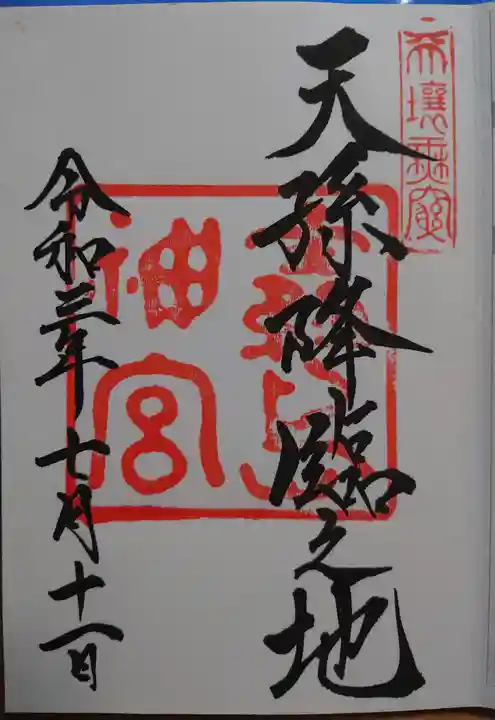 天壤無窮
天孫降臨之地
霧島
神宮
令和三年七月十一日